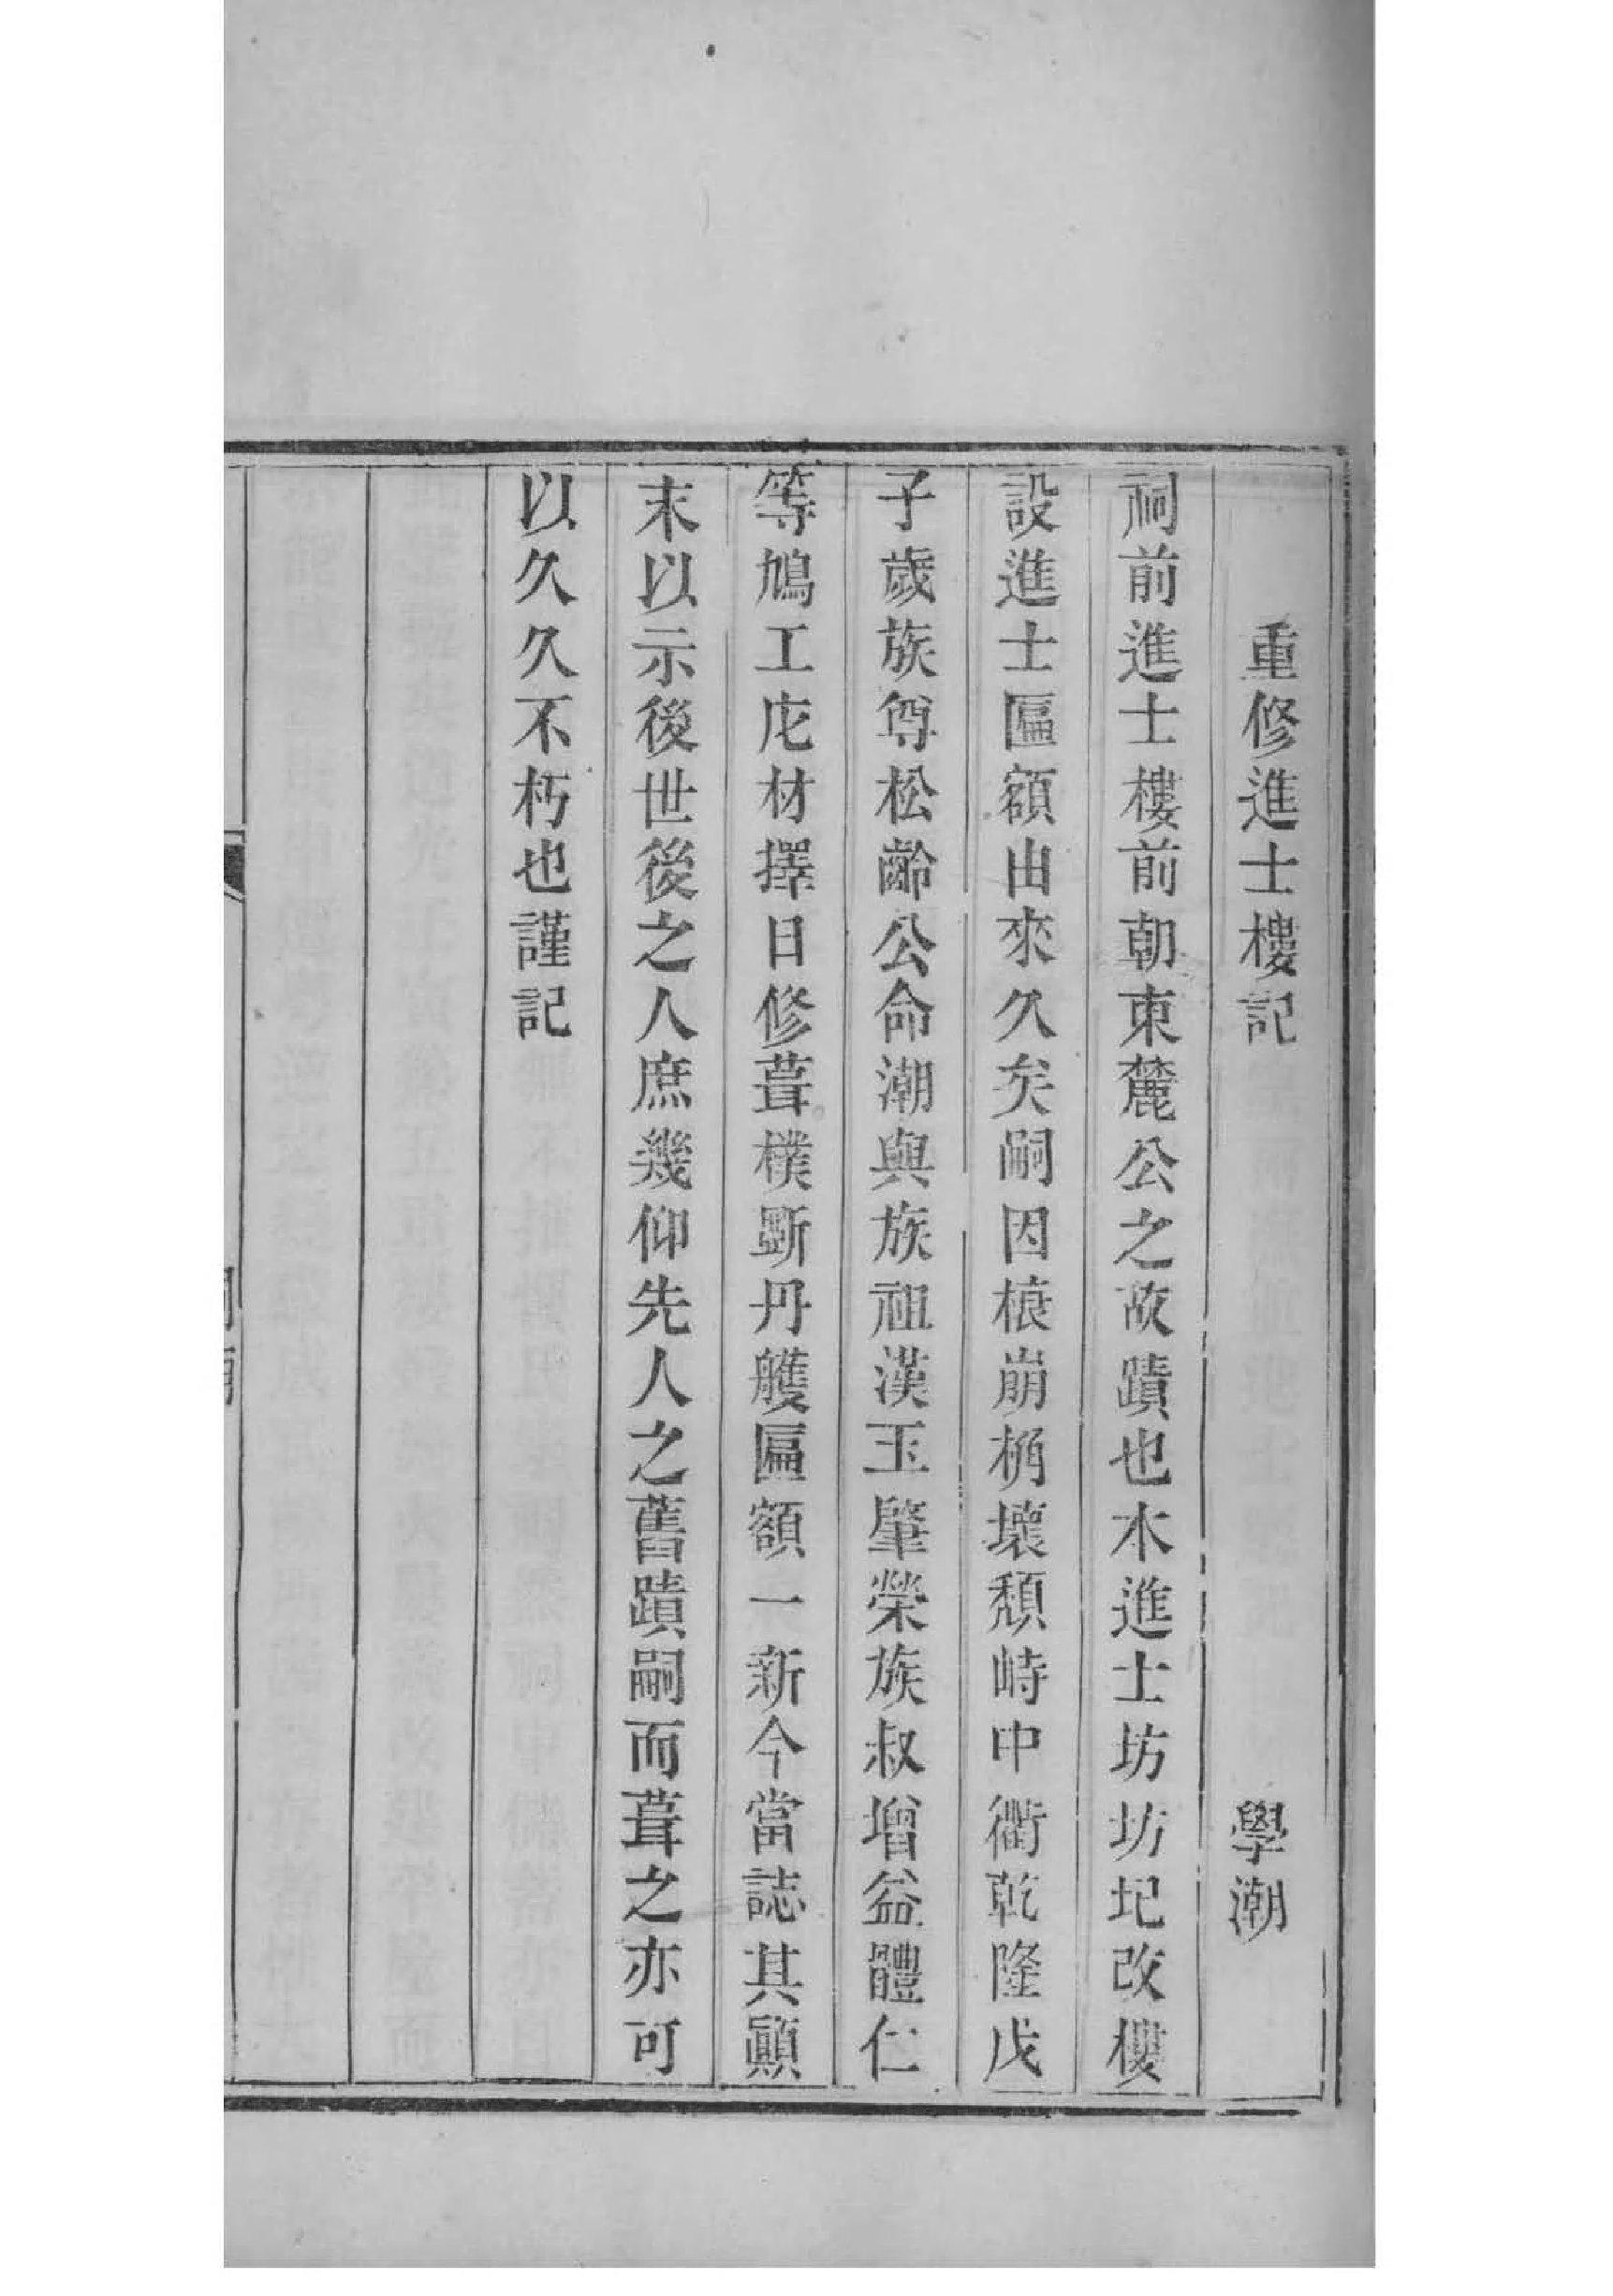 重修進士樓記　學潮
祠前進士樓前朝東麓公之故蹟也木進士坊坊圮改樓
設進士匾額由來久矣嗣因榱崩桷壞頹峙中衢乾隆戊
子歲族尊松齡公命潮與族祖漢玉肇榮族叔增益體仁
等鳩工庀材擇日修葺樸斲丹艧匾額一新今當誌其顚
末以示後世後之人庶幾仰先人之舊蹟嗣而葺之亦可
以久久不朽也謹記